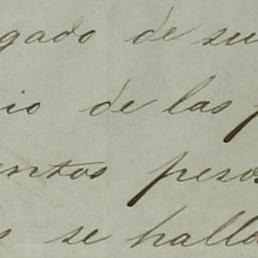 gado de su
io de las p
entos pesos
s se halla